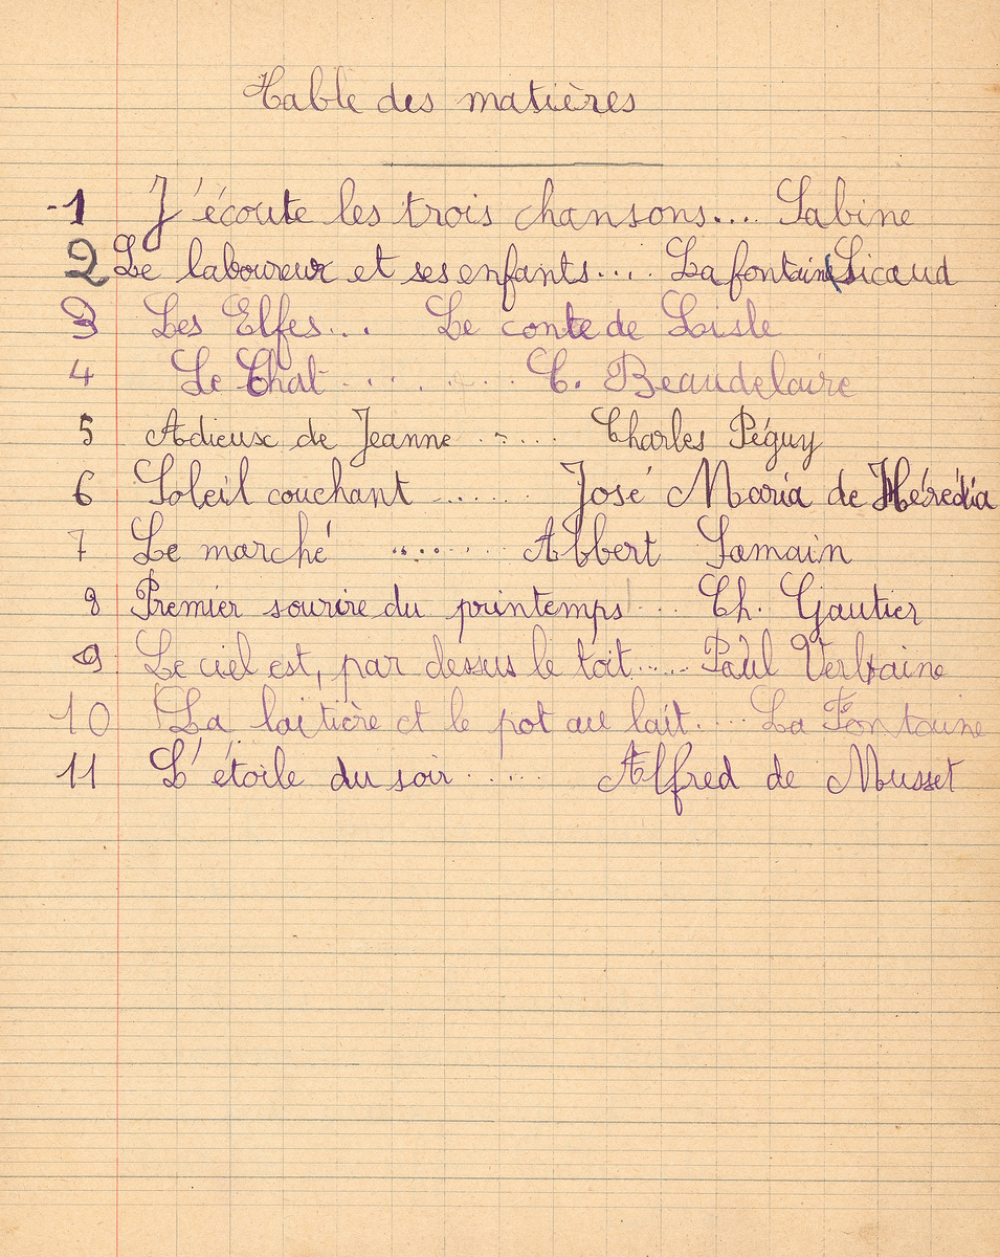 Table des matières
-1 J'écoute les trois chansons.... Sabine
2 Le laboureur et ses enfants.... Lafontaine Sicaud
3 Les Elfes... Le conte de Lisle
4 Le Chat ........ C. Beaudelaire
5 Adieux de Jeanne ..... Charles Péguy
6 Soleil couchant ...... José Maria de Hérédia
7 Le marché ...... Albert Samain
8 Premier sourire du printemps ... Th. Gautier
9 Le ciel est, par dessus le toit...... Paul Verlaine
10 La laitière et le pot au lait..... La Fontaine
11 L'étoile du soir ...... Alfred de Musset